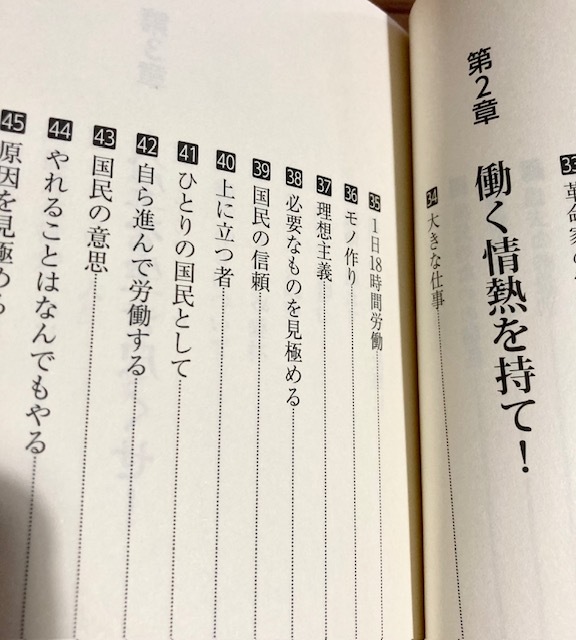 33 革命家の
第2章 働く情熱を持て！
34 大きな仕事
35 1日18時間労働
36 モノ作り
37 理想主義
38 必要なものを見極める
39 国民の信頼
40 上に立つ者
41 ひとりの国民として
42 自ら進んで労働する
43 国民の意思
44 やれることはなんでもやる
45 原因を見極める